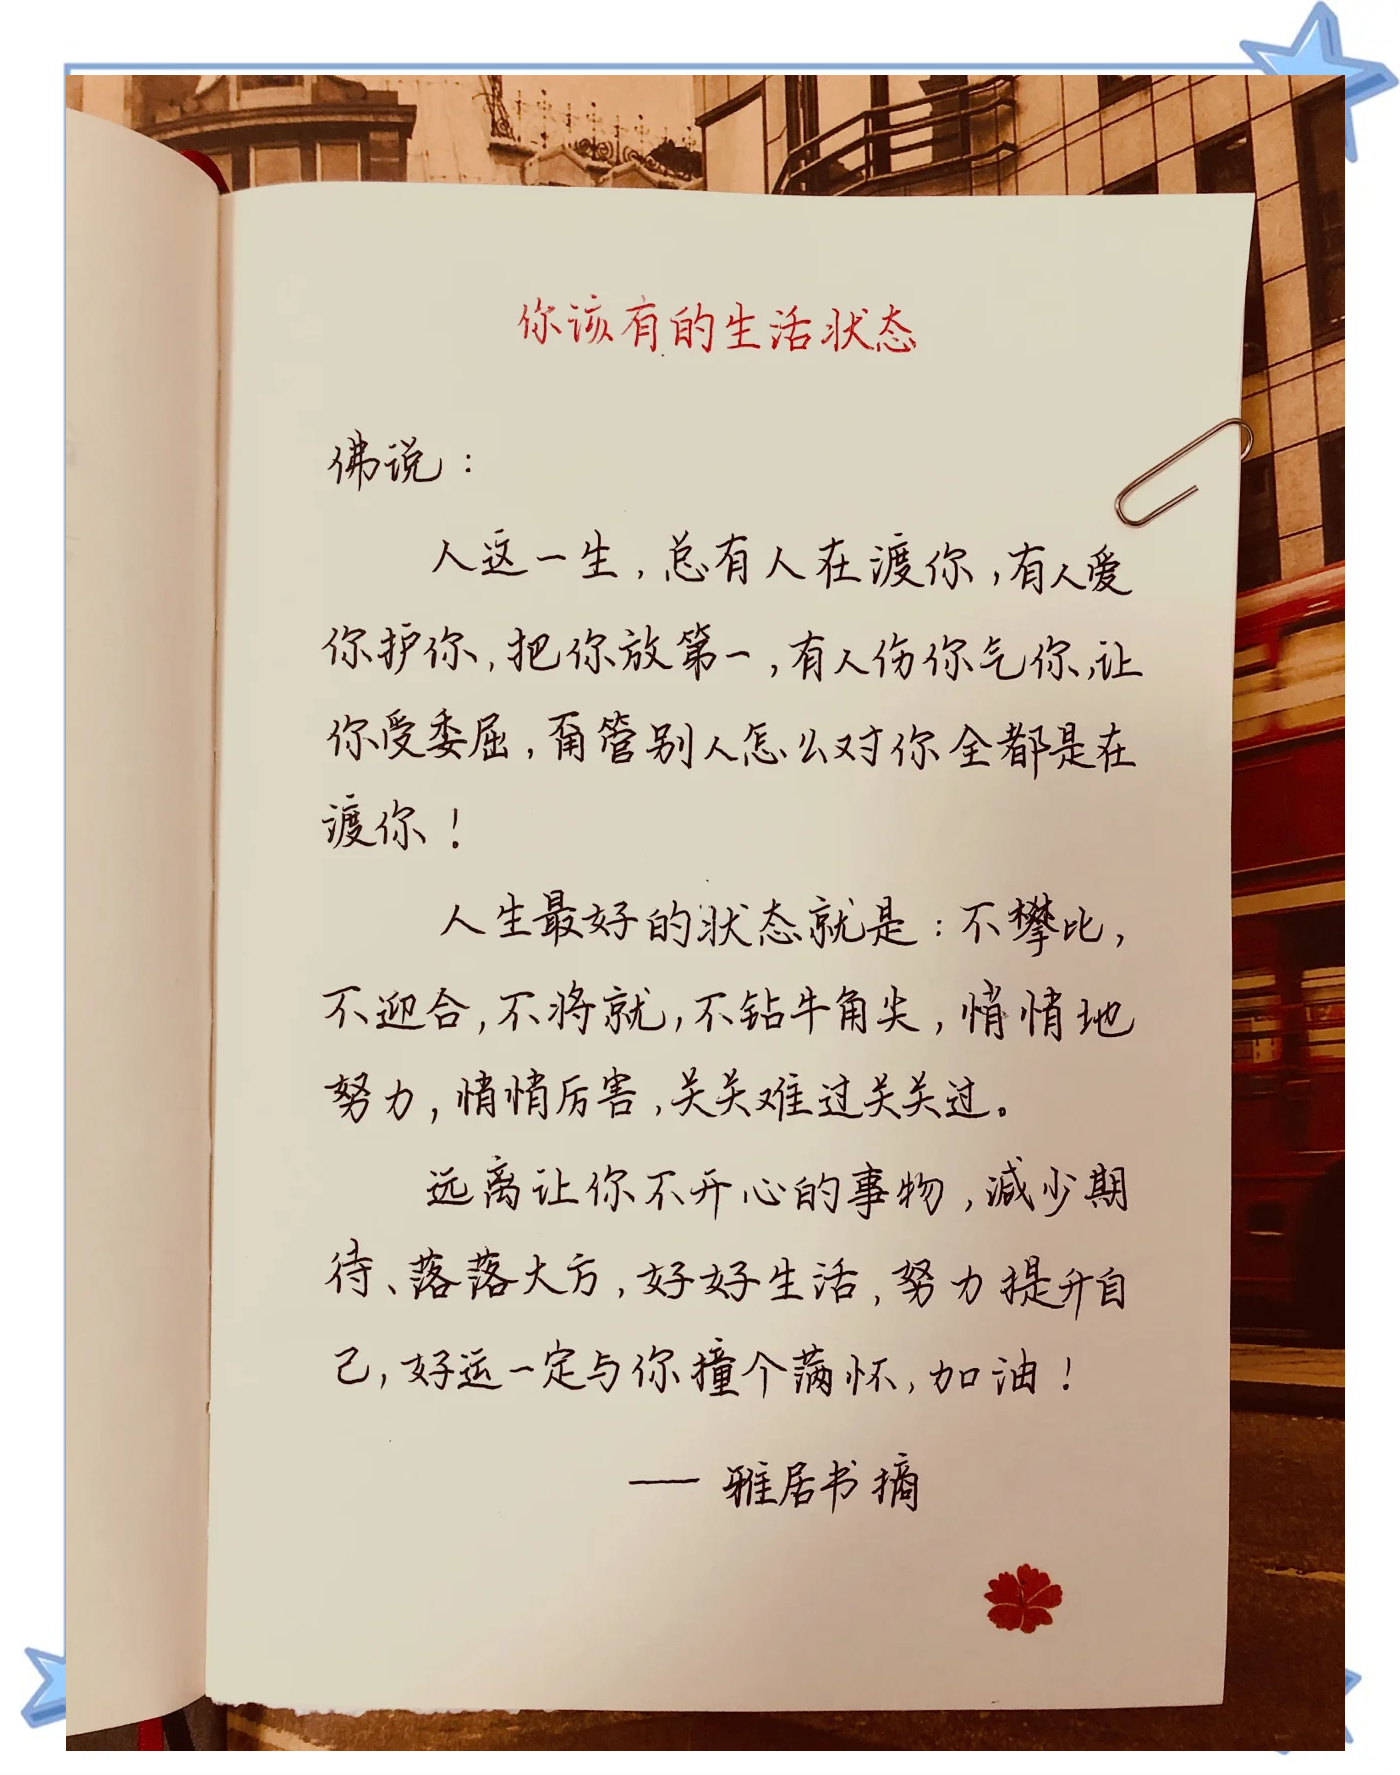 你该有的生活状态
佛说：
人这一生，总有人在渡你，有人爱
你护你，把你放第一，有人伤你气你，让
你受委屈，甭管别人怎么对你全都是在
渡你！
人生最好的状态就是：不攀比，
不迎合，不将就，不钻牛角尖，悄悄地
努力，悄悄厉害，关关难过关关过。
远离让你不开心的事物，减少期
待、落落大方，好好生活，努力提升自
己，好运一定与你撞个满怀，加油！
—— 雅居书摘